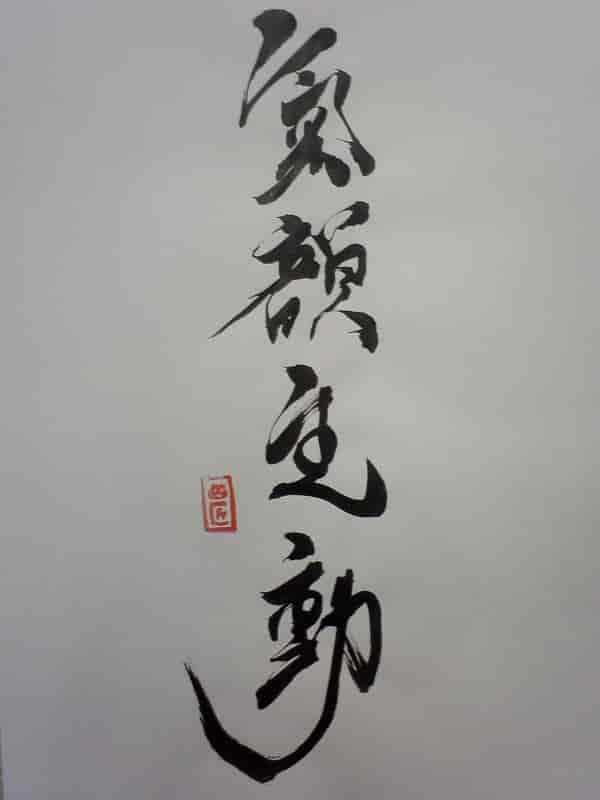 氣韻生動